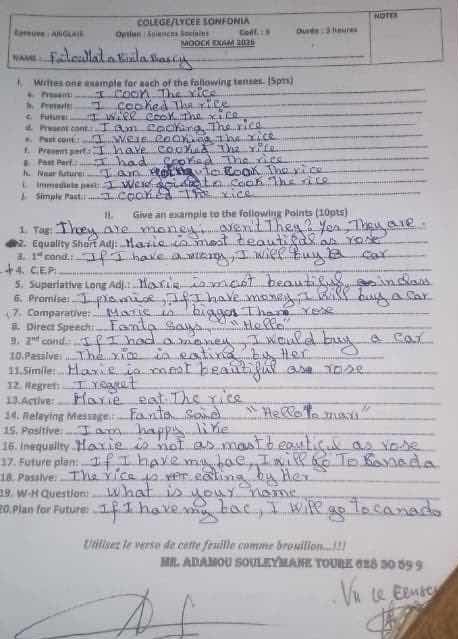 COLEGE/LYCEE SONFONIA
NOTES
Epreuve : ANGLAIS Option : Sciences Sociales Coef. : 3 Durée : 3 heures
MOOCK EXAM 2025
NAME : Fatoumata Binta Barry
I. Writes one example for each of the following tenses. (5pts)
a. Present: I cook The rice
b. Preterit: I cooked The rice
c. Future: I will cook the rice
d. Present cont.: I am cooking The rice
e. Past cont.: I were cooking the rice
f. Present perf.: I have cooked The rice
g. Past Perf.: I had cooked The rice
h. Near future: I am going to cook The rice
i. Immediate past: I were going to cook The rice
j. Simple Past.: I cooked The rice
II. Give an example to the following Points (10pts)
1. Tag: They are money, aren't They? Yes, They are.
2. Equality Short Adj: Marie is most beautiful as rose
3. 1st cond.: If I have a money, I will buy a car
4. C.E.P:
5. Superlative Long Adj.: Marie is most beautiful in class
6. Promise: I promise, If I have money, I will buy a car
7. Comparative: Marie is bigger Than rose
8. Direct Speech: Fanta Says, "Hello"
9. 2nd cond.: If I had a money, I would buy a car
10.Passive: The rice is eating by Her
11.Simile: Marie is most beautiful as rose
12. Regret: I regret
13.Active: Marie eat The rice
14. Relaying Message: Fanta said "Hello to mari"
15. Positive: I am happy like
16. Inequality Marie is not as most beautiful as rose
17. Future plan: If I have my bac, I will go To Kanada
18. Passive: The rice is eating by Her
19. W-H Question: What is your name
20.Plan for Future: If I have my bac, I will go to canada
Utilisez le verso de cette feuille comme brouillon...!!!
MR. ADAMOU SOULEYMANE TOURE 628 30 59 9
Vu le Censeur